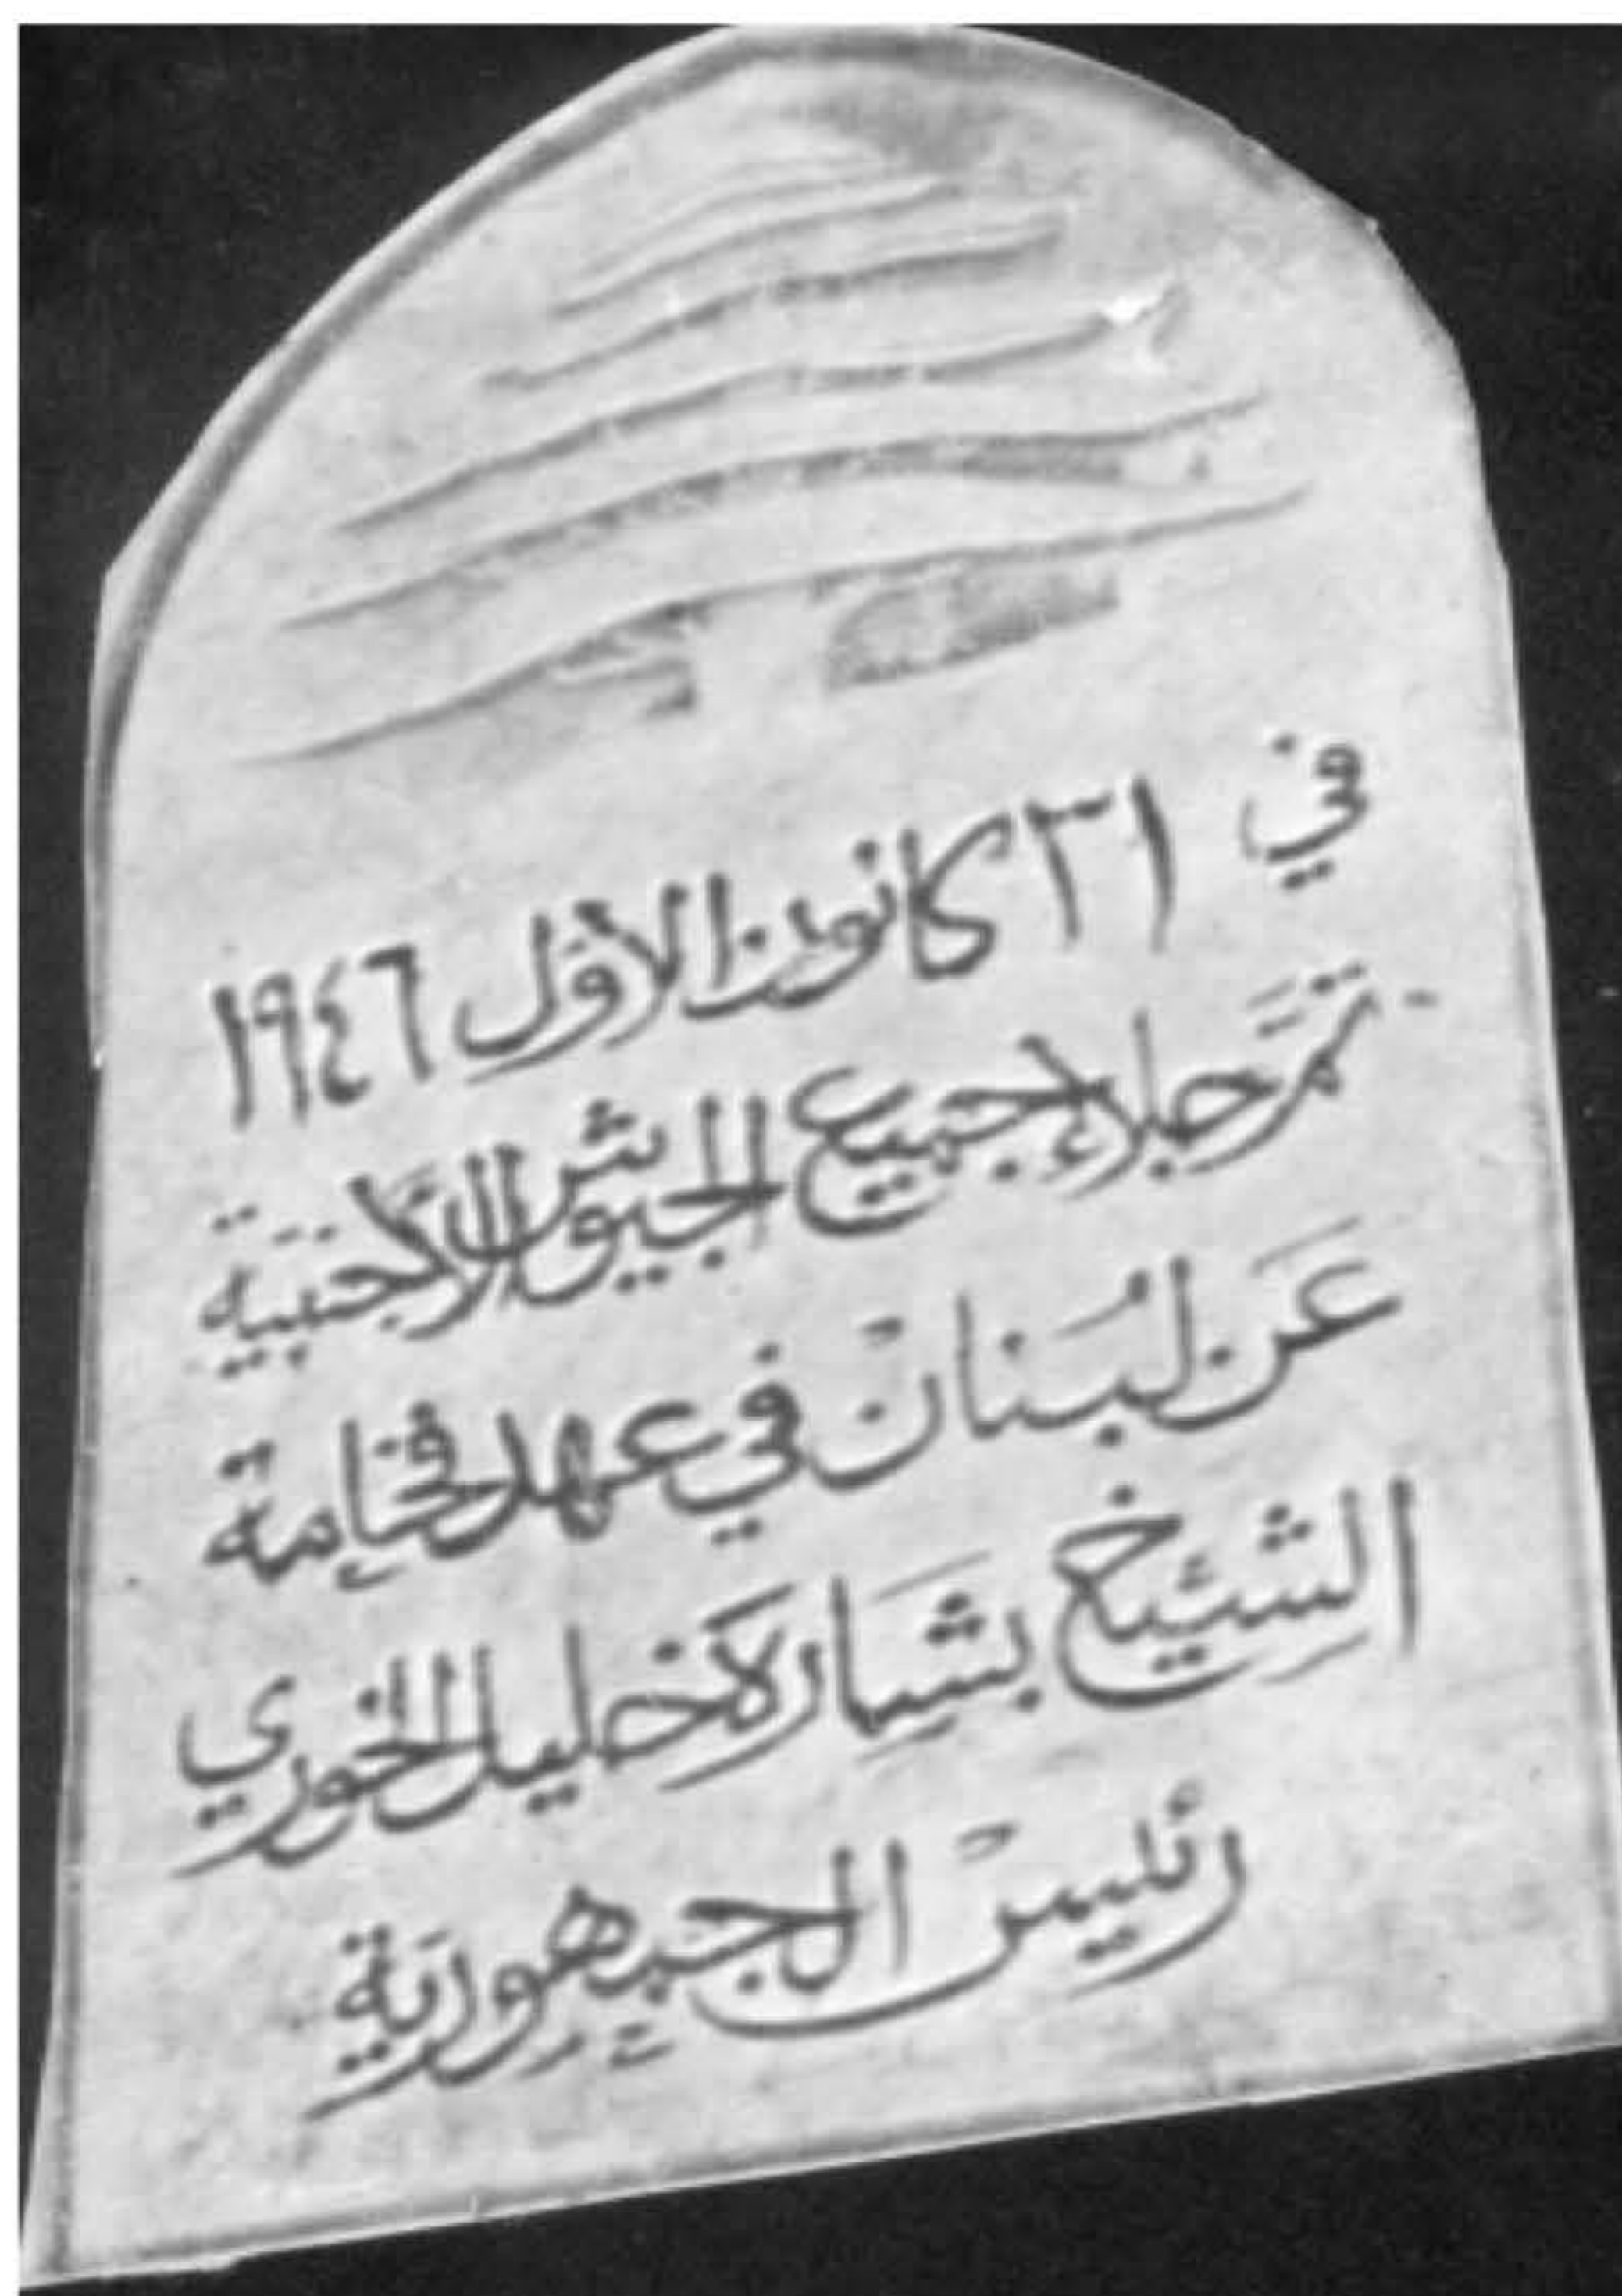 في ٣١ كانون الأول ١٩٤٦
تمَّ جلاء جميع الجيوش الأجنبيَّة
عَن لبُنان في عهد فخامة
الشيخ بشَارة خليل الخوري
رئيس الجمهوريَة